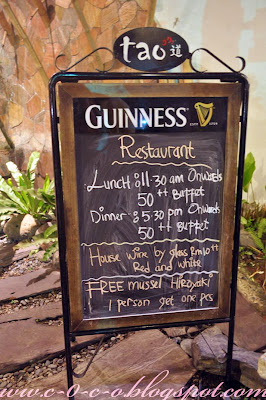 tao 道
GUINNESS
Restaurant
Lunch : 11.30 am Onwards
50 ++ Buffet
Dinner : 5.30 pm Onwards
50 ++ Buffet
House wine by glass RM10++
Red and white
FREE mussel Hiroyaki
1 person get one pcs
www.c-0-c-o.blogspot.com